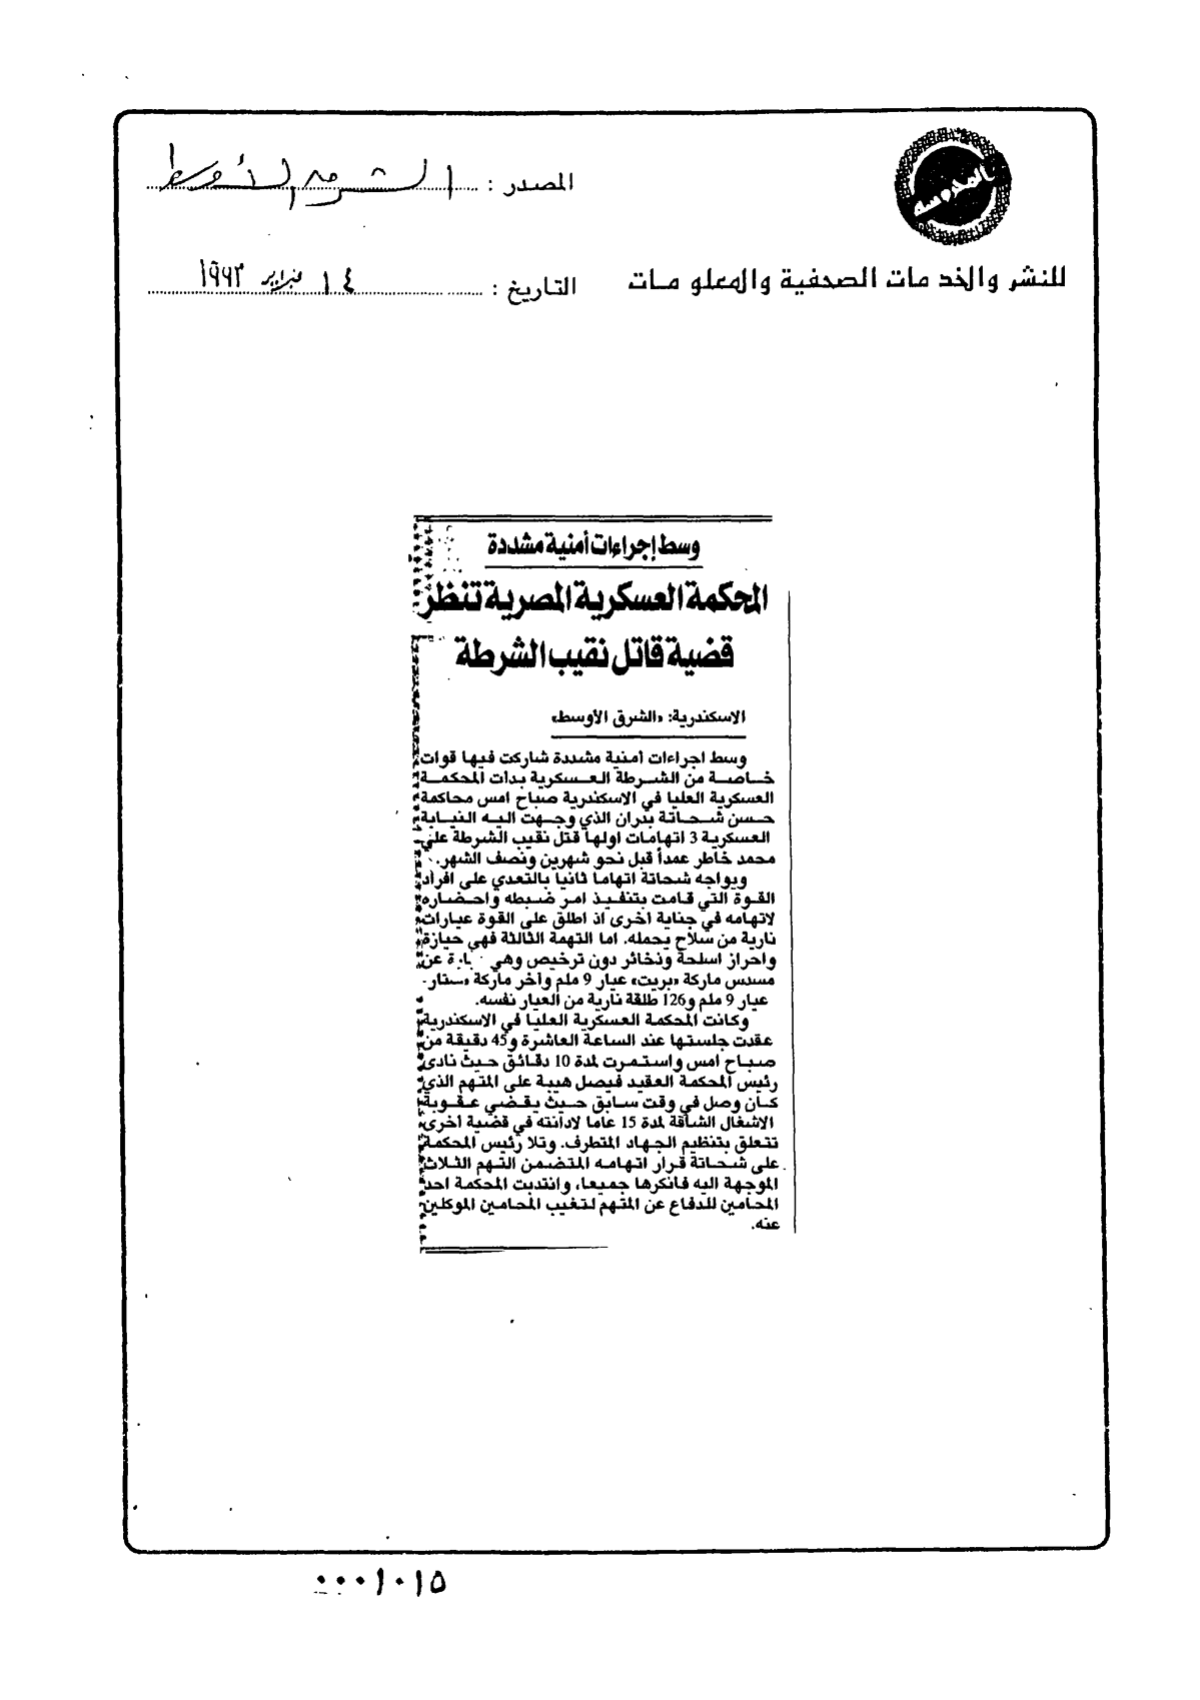 المصدر : الشرق الأوسط
للنشر والخدمات الصحفية والمعلومات
التاريخ : ١٤ فبراير ١٩٩٣
وسط إجراءات أمنية مشددة
المحكمة العسكرية المصرية تنظر
قضية قاتل نقيب الشرطة
الاسكندرية: «الشرق الأوسط»
وسط اجراءات أمنية مشددة شاركت فيها قوات
خاصة من الشرطة العسكرية بدات المحكمة
العسكرية العليا في الاسكندرية صباح امس محاكمة
حسن شحاتة بدران الذي وجهت اليه النيابة
العسكرية 3 اتهامات اولها قتل نقيب الشرطة علي
محمد خاطر عمداً قبل نحو شهرين ونصف الشهر.
ويواجه شحاتة اتهاما ثانيا بالتعدي على افراد
القوة التي قامت بتنفيذ امر ضبطه واحضاره
لاتهامه في جناية اخرى اذ اطلق على القوة عيارات
نارية من سلاح يحمله. اما التهمة الثالثة فهي حيازة
واحراز اسلحة وذخائر دون ترخيص وهي عن
مسدس ماركة «بريت» عيار 9 ملم وآخر ماركة «ستار»
عيار 9 ملم و126 طلقة نارية من العيار نفسه.
وكانت المحكمة العسكرية العليا في الاسكندرية
عقدت جلستها عند الساعة العاشرة و45 دقيقة من
صباح امس واستمرت لمدة 10 دقائق حيث نادى
رئيس المحكمة العقيد فيصل هيبة على المتهم الذي
كان وصل في وقت سابق حيث يقضي عقوبة
الاشغال الشاقة لمدة 15 عاما لادانته في قضية اخرى
تتعلق بتنظيم الجهاد المتطرف. وتلا رئيس المحكمة
على شحاتة قرار اتهامه المتضمن التهم الثلاث
الموجهة اليه فانكرها جميعا، وانتدبت المحكمة احد
المحامين للدفاع عن المتهم لتغيب المحامين الموكلين
عنه.
٠٠٠١٠١٥